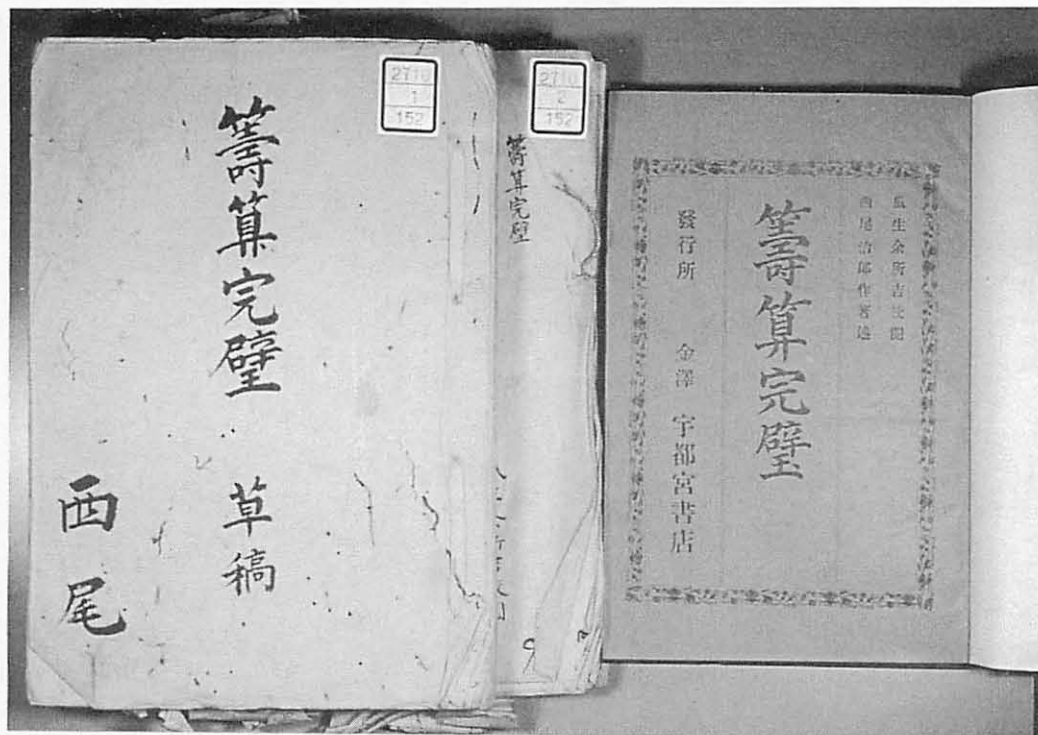 2710
1
152
籌算完璧 草稿
西尾
2710
2
152
籌算完璧
西尾治郎作著述
籌算完璧
發行所 金澤 宇都宮書店